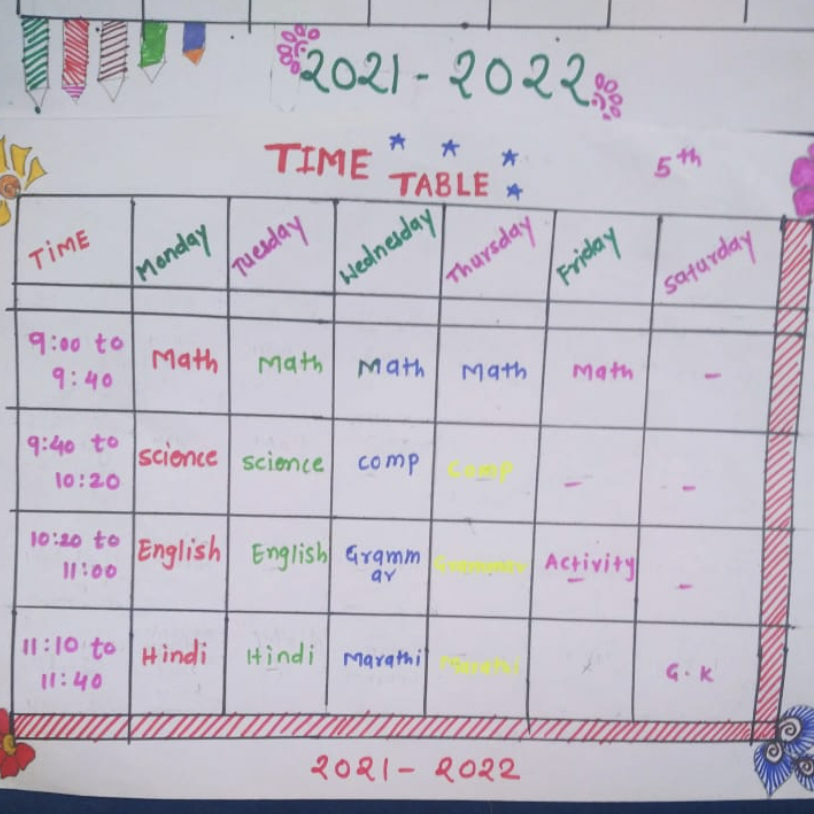 2021-2022
TIME
TABLE
5th
TIME Monday Tuesday Wednesday Thursday Friday Saturday
9:00 to
9:40
Math Math Math Math Math -
9:40 to
10:20
science science comp Comp - -
10:20 to
11:00
English English Gramm
ar
Grammar Activity -
11:10 to
11:40
Hindi Hindi Marathi Marathi G.K
2021-2022